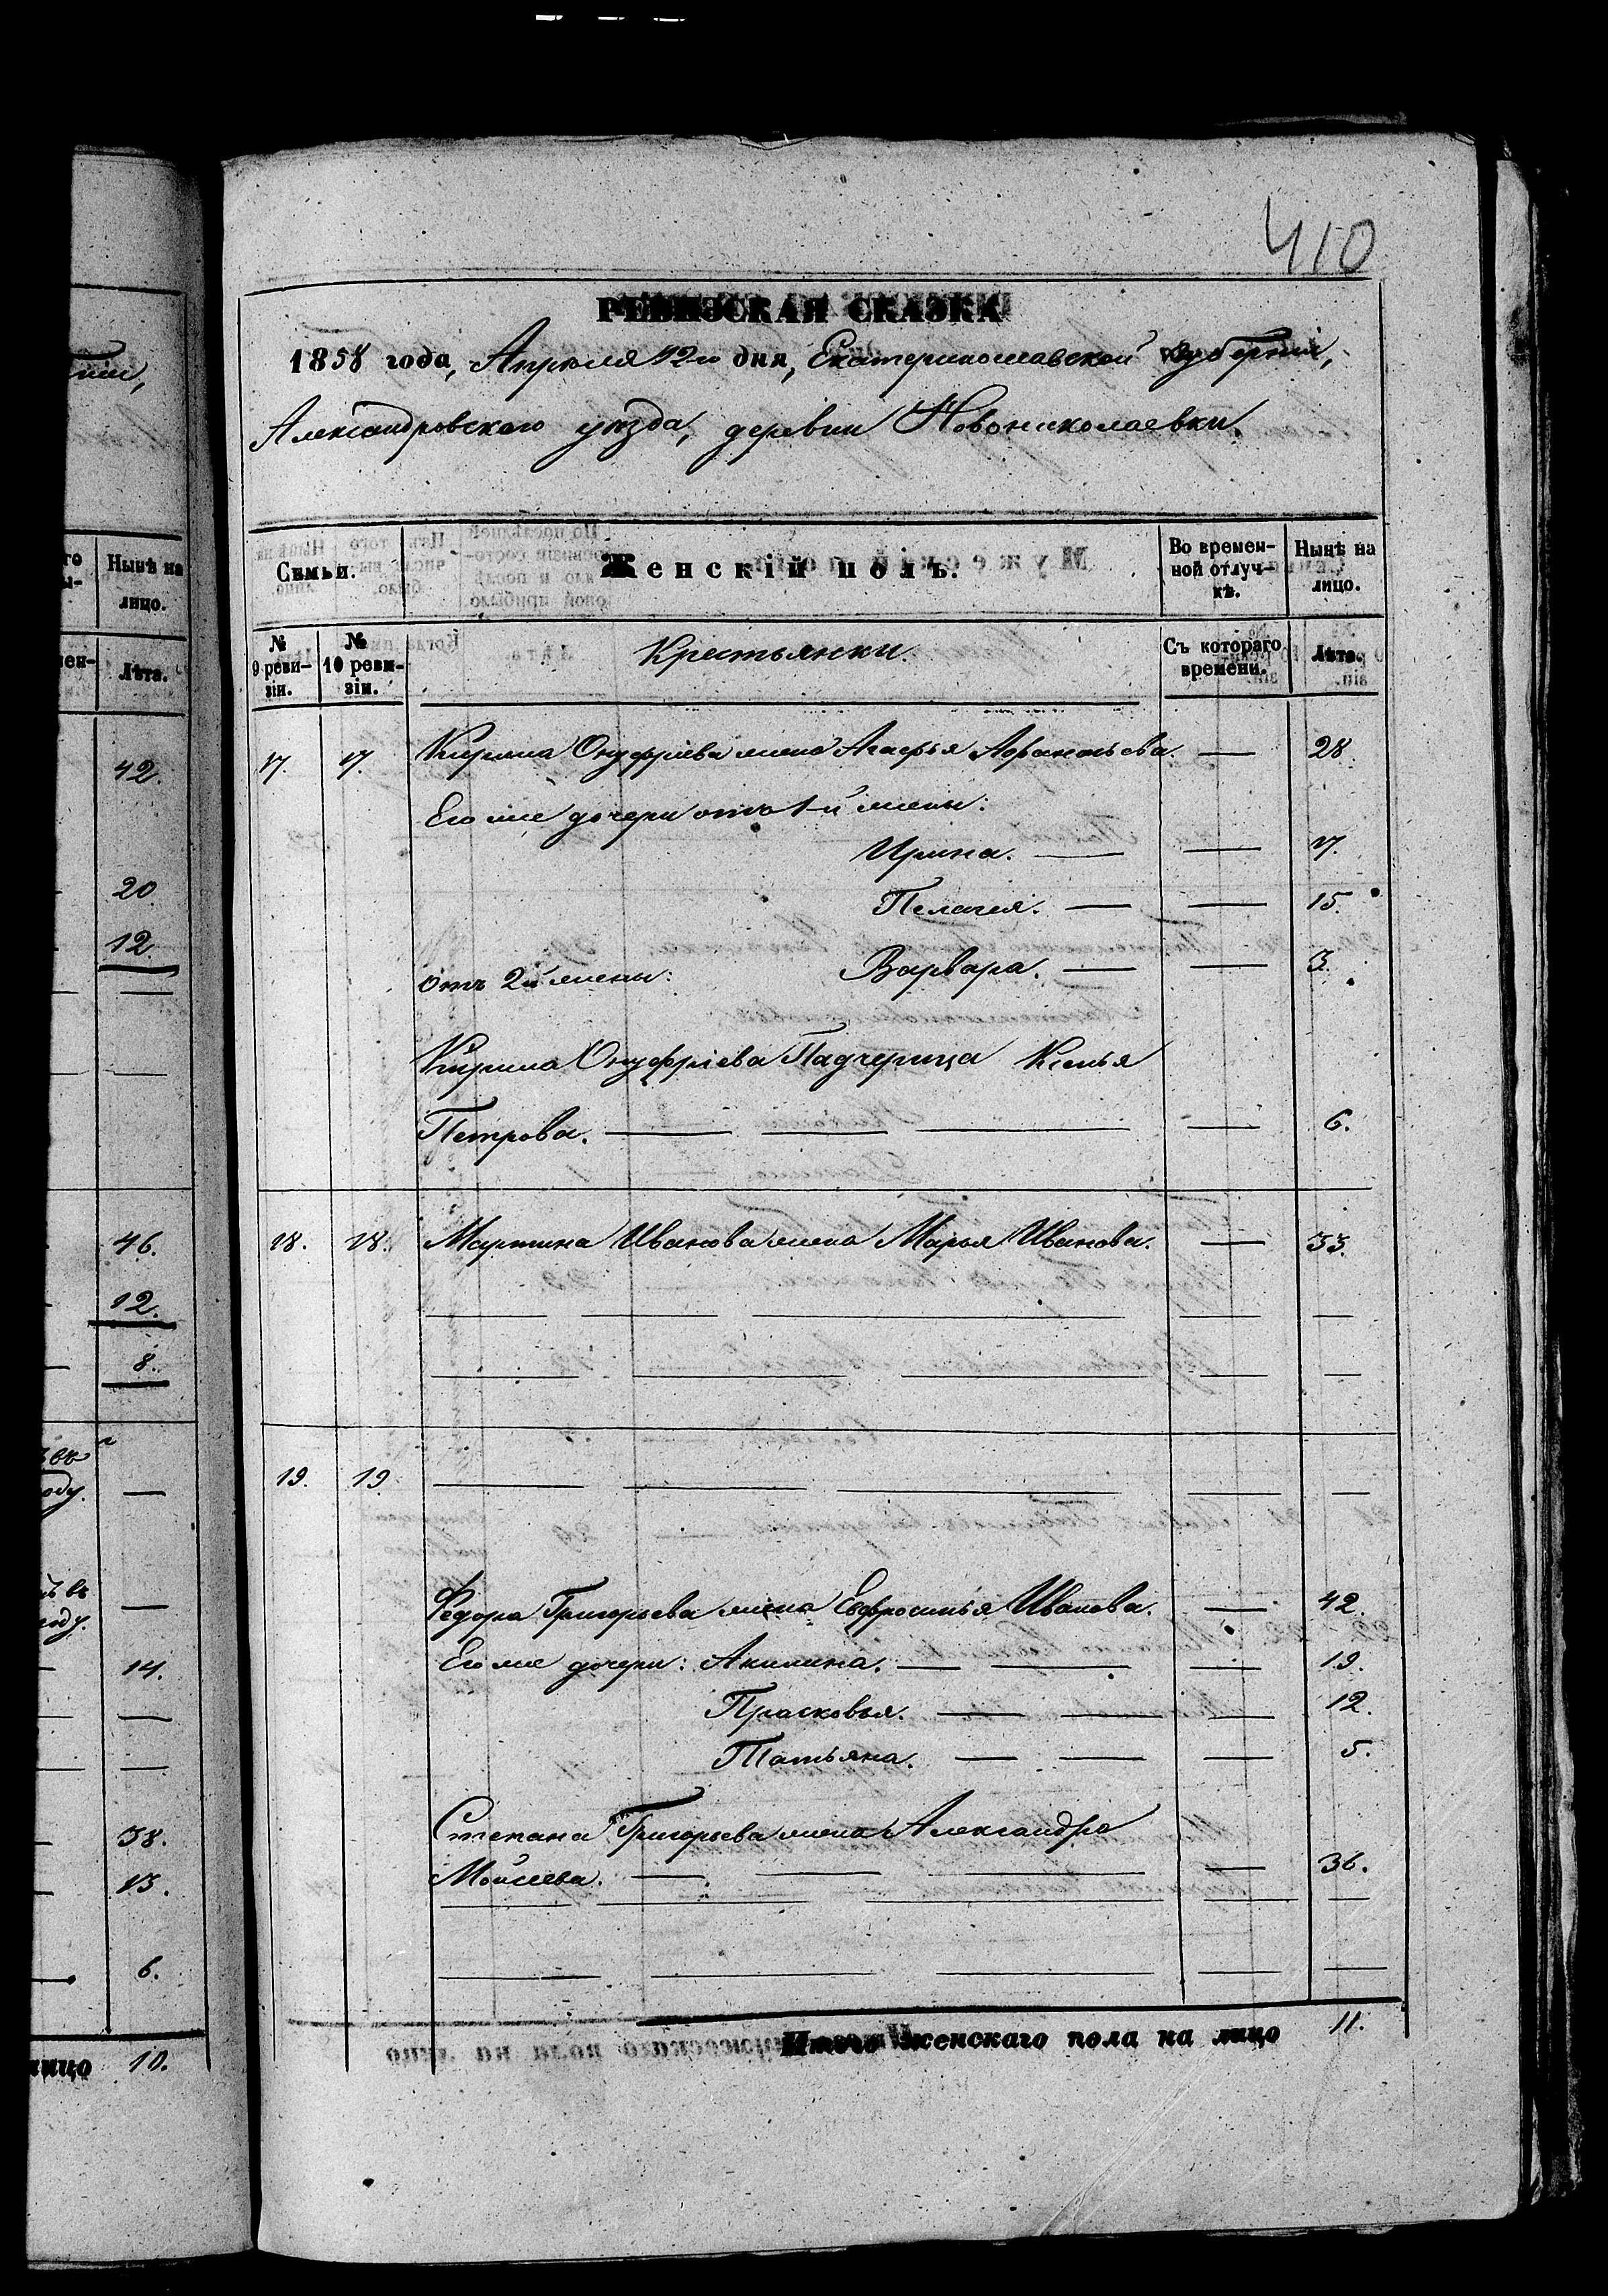 410
РЕВИЗСКАЯ СКАЗКА
1858 года, Апрѣля 12го дня, Екатеринославской губерніи,
Александровского уѣзда, деревни Новониколаевки.
Семьи.
Женскій полъ.
Во времен-
ной отлуч-
кѣ.
Нынѣ на
лицо.
№
9 реви-
зіи.
№
10 реви-
зіи.
Крестьянки.
Съ котораго
времени.
Лѣта.
17. 17. Кирила Онуфріева жена Агафья Афанасьева. — 28.
Его же дочери отъ 1-й жены:
Ирина. — — 17.
Пелагея. — — 15.
отъ 2й жены: Варвара. — — 3.
Кирила Онуфріева Падчерица Ксенья
Петрова. — — — — 6.
18. 18. Мартина Иванова жена Марья Иванова. — 33.
19. 19. — — — — —
Федора Григорьева жена Евфросинья Иванова. — 42.
Его же дочери: Акилина. — — — 19.
Прасковья. — — — 12.
Татьяна. — — — 5.
Степана Григорьева жена Александра
Мойсеева. — — — — 36.
Итого женскаго пола на лицо 11.
ніи,
Нынѣ на
лицо.
Лѣта.
42.
20.
12.
46.
12.
8.
14.
38.
13.
6.
лицо 10.